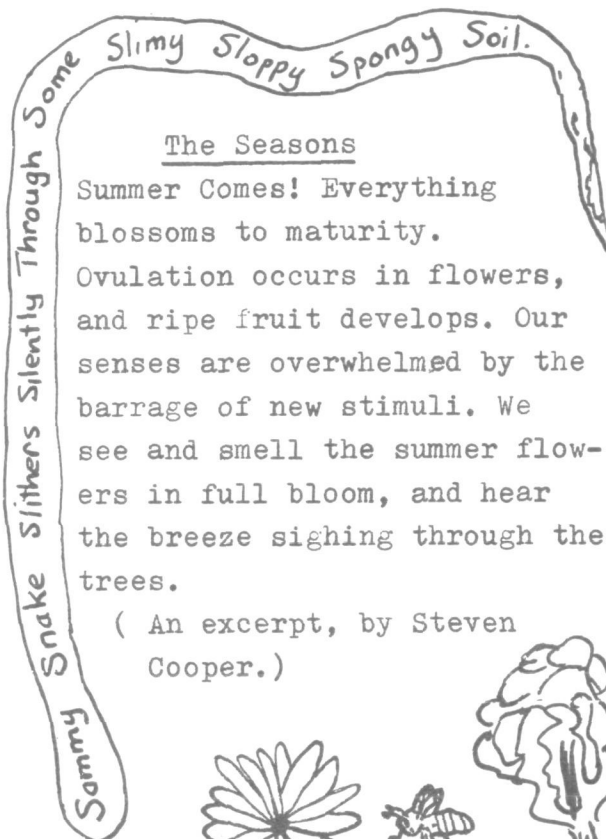 Sammy Snake Slithers Silently Through Some Slimy Sloppy Spongy Soil.
The Seasons
Summer Comes! Everything
blossoms to maturity.
Ovulation occurs in flowers,
and ripe fruit develops. Our
senses are overwhelmed by the
barrage of new stimuli. We
see and smell the summer flow-
ers in full bloom, and hear
the breeze sighing through the
trees.
( An excerpt, by Steven
Cooper.)